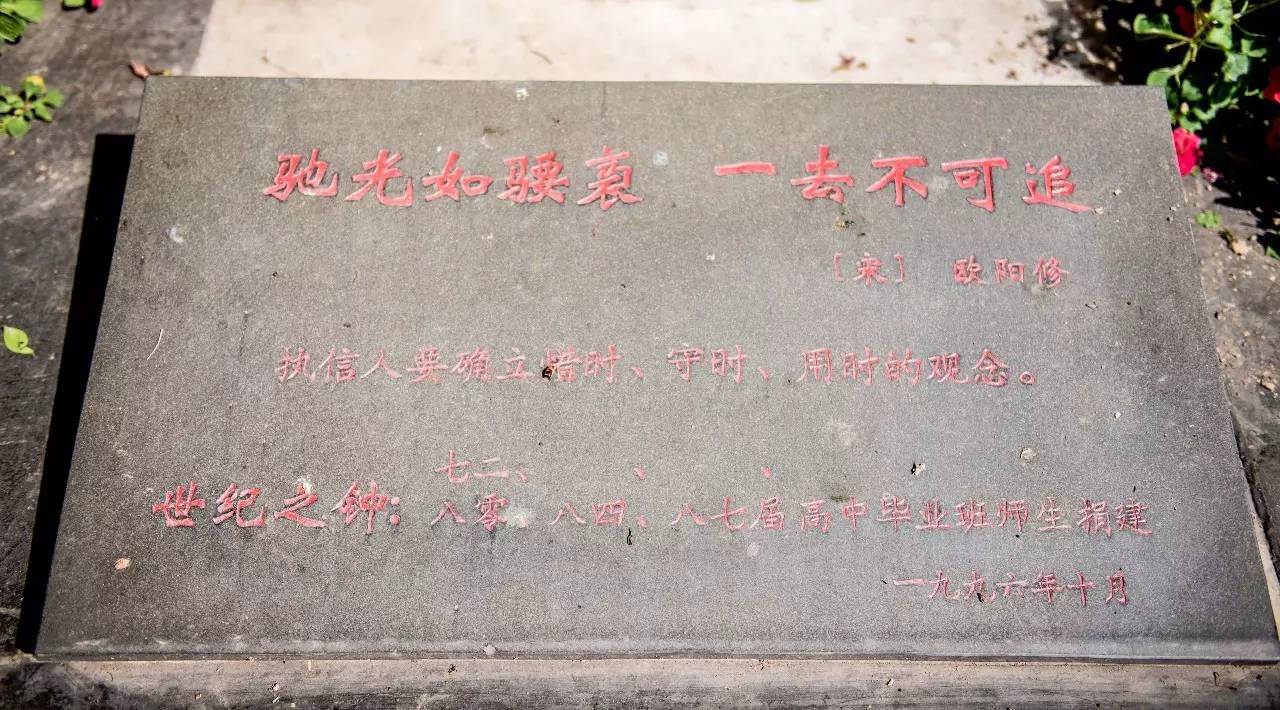 驰光如骏裹 一去不可追
〔宋〕 欧阳修
执信人要确立惜时、守时、用时的观念。
七二、 、 、
世纪之钟:八零 八四、八七届高中毕业班师生捐建
一九九六年十月